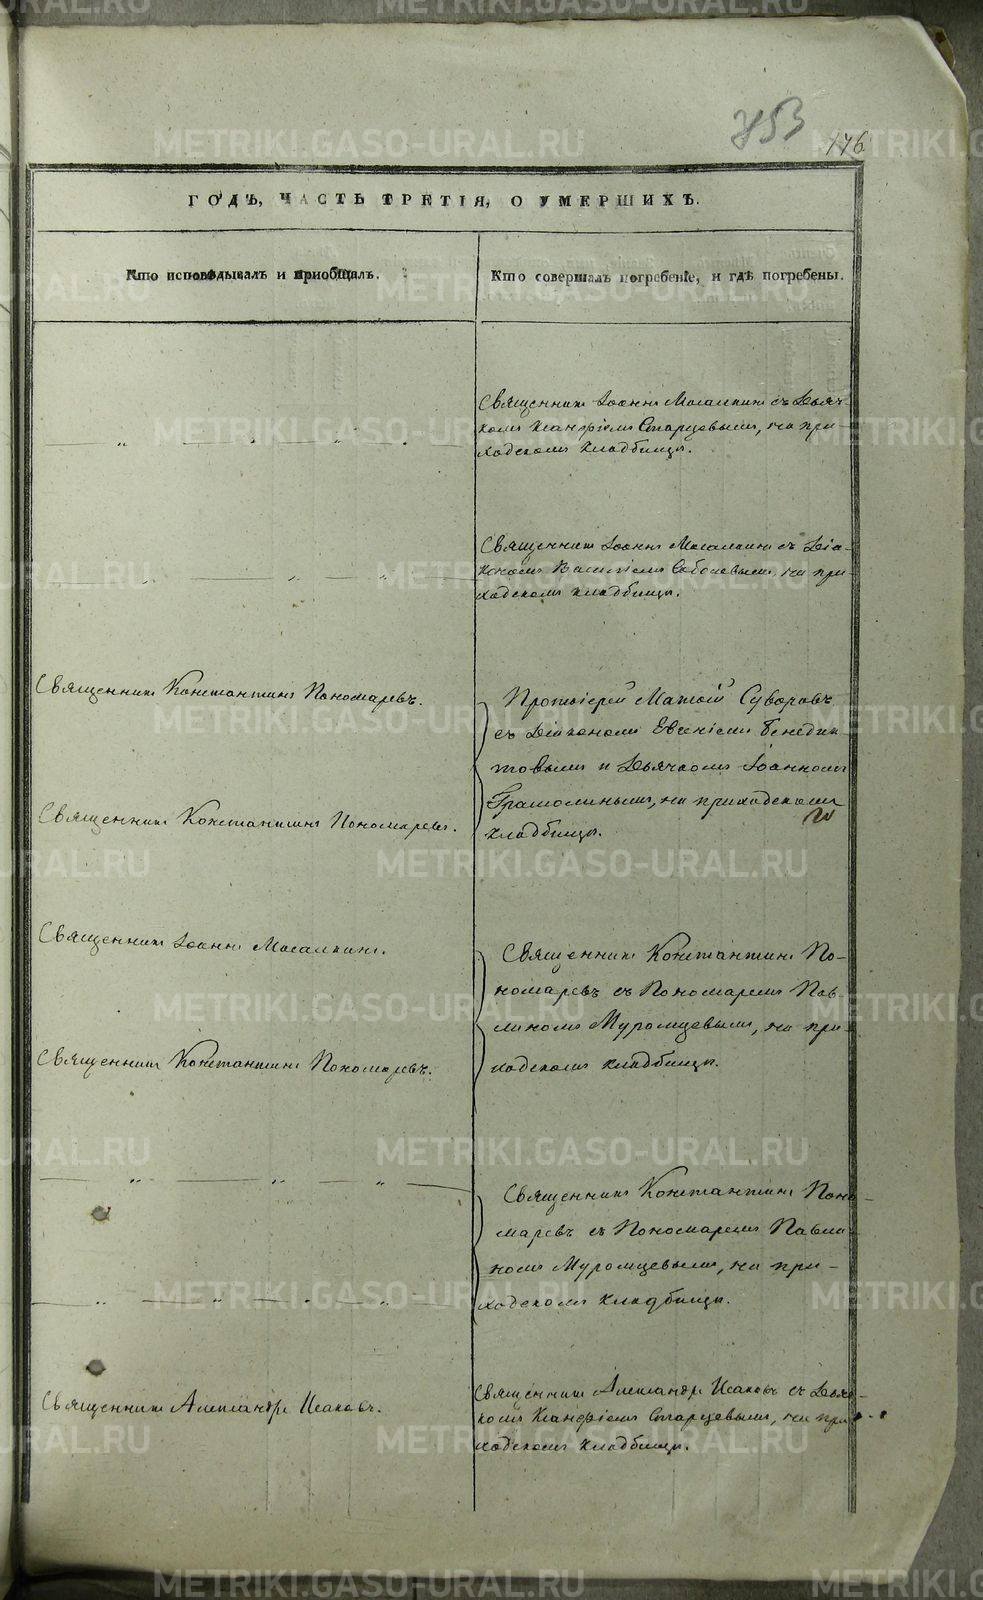 753
176
ГОДЪ, ЧАСТЬ ТРЕТІЯ, О УМЕРШИХЪ.
Кто исповѣдывалъ и приобщалъ.
Кто совершалъ погребеніе, и гдѣ погребены.
Священникъ Іоаннъ Мосалкинъ съ Дьяч-
комъ Ксанфіемъ Старцевымъ, на при-
ходскомъ кладбищѣ.
Священникъ Іоаннъ Мосалкинъ съ Діа-
кономъ Василіемъ Соболевымъ, на при-
ходскомъ кладбищѣ.
Священникъ Константинъ Пономаревъ.
Протоіерей Матѳій Суворовъ
съ Діакономъ Евгеніемъ Бенедик
товымъ и Дьячкомъ Іоанномъ
Грамолинымъ, на приходскомъ
кладбищѣ.
Священникъ Константинъ Пономаревъ.
Священникъ Іоаннъ Мосалкинъ.
Священникъ Константинъ По-
номаревъ съ Пономаремъ Пав
линомъ Муромцевымъ, на при-
ходскомъ кладбищѣ.
Священникъ Константинъ Пономаревъ.
Священникъ Константинъ Поно-
маревъ съ Пономаремъ Павли-
номъ Муромцевымъ, на при-
ходскомъ кладбищѣ.
Священникъ Александръ Исаковъ.
Священникъ Александръ Исаковъ съ Дьяч-
комъ Ксанфіемъ Старцевымъ, на при-
ходскомъ кладбищѣ.
METRIKI.GASO-URAL.RU